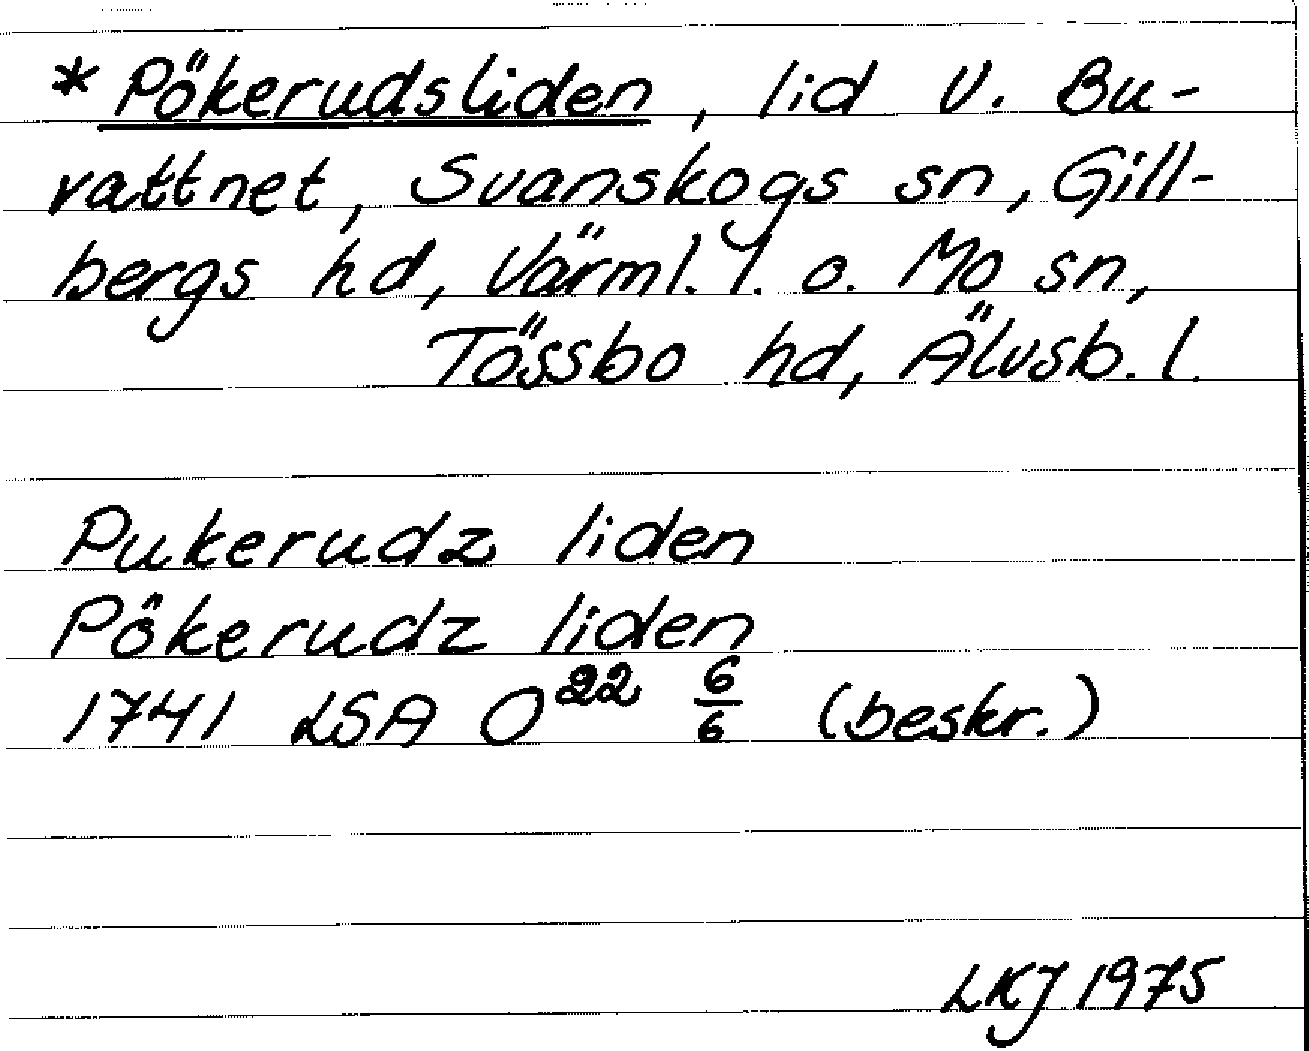 * Pökerudsliden, lid V. Bu-
vattnet, Svanskogs sn, Gill-
bergs hd, Värml. l. o. Mo sn,
Tössbo hd, Älvsb. l.
Pukerudz liden
Pökerudz liden
1741 LSA O²² 6/6 (beskr.)
LKJ 1975